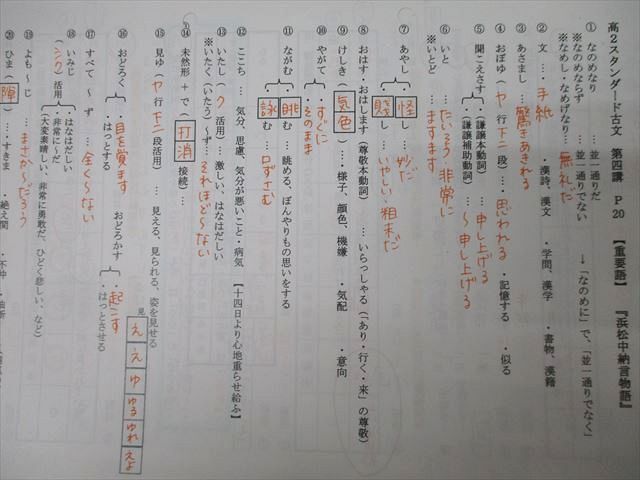 高2スタンダード古文 第四講 P20 【重要語】 『浜松中納言物語』
① なのめなり … 並一通りだ
※なのめならず … 並一通りでない → 「なのめに」で、「並一通りでなく」
※なめし・なめげなり… 無礼だ
② 文 … ・手紙 ・漢詩、漢文 ・学問、漢学 ・書物、漢籍
③ あさまし … 驚きあきれる
④ おぼゆ（ヤ行下二段） … ・思われる ・記憶する ・似る
⑤ 聞こえさす （謙譲本動詞） … 申し上げる
（謙譲補助動詞） … ～申し上げる
⑥ いと … たいそう・非常に
※いとど … ますます
⑦ あやし 怪し … 妙だ
賤し … いやしい・粗末だ
⑧ おはす・おはします（尊敬本動詞） … いらっしゃる（「あり・行く・来」の尊敬）
⑨ けしき（気色）… ・様子、顔色、機嫌 ・気配 ・意向
⑩ やがて ・すぐに
・そのまま
⑪ ながむ 眺む … 眺める、ぼんやりもの思いをする
詠む … 口ずさむ
⑫ ここち … 気分、思慮、気分が悪いこと・病気 【十四日より心地重らせ給ふ】
⑬ いたし（ク活用） … 激しい、はなはだしい
※いたく（いたう）～ず… それほど～ない
⑭ 未然形＋で（打消接続）…
⑮ 見ゆ（ヤ行下二段活用） … 見える、見られる、姿を見せる
見 え え ゆ ゆる ゆれ えよ
⑯ おどろく ・目を覚ます
・はっとする
おどろかす ・起こす
・はっとさせる
⑰ すべて ～ ず … 全く～ない
⑱ いみじ ・はなはだしい
（シク）活用 ・非常に～だ
（大変素晴しい、非常に勇敢だ、ひどく悲しい、など）
⑲ よも ～ じ … まさか～だろう
⑳ ひま（隙）… ・すきま ・絶え間 ・不仲